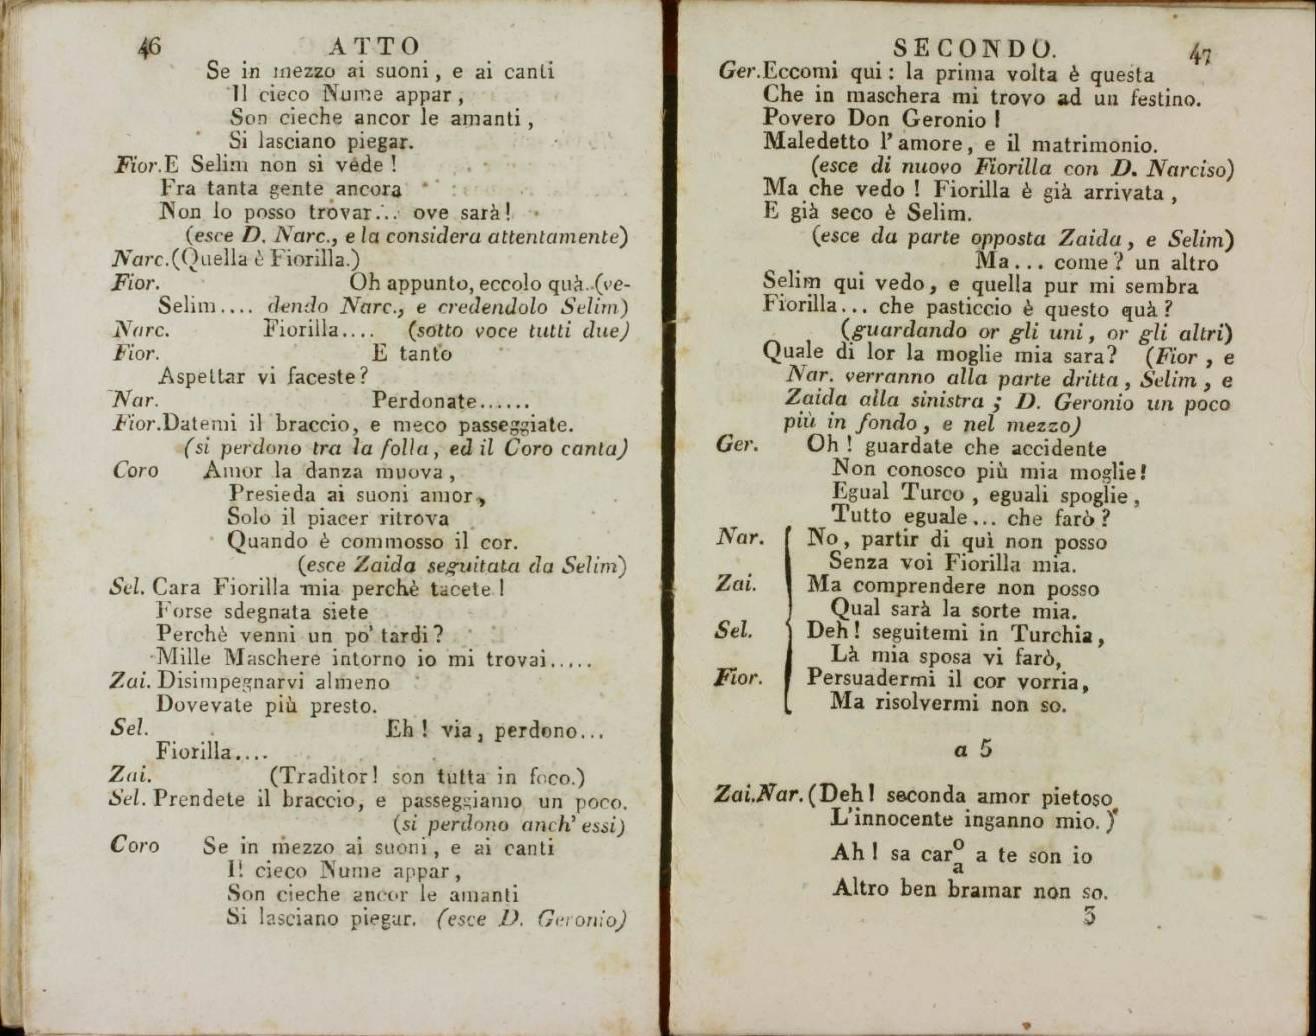 46 ATTO
Se in mezzo ai suoni, e ai canti
Il cieco Nume appar,
Son cieche ancor le amanti,
Si lasciano piegar.
Fior. E Selim non si vede!
Fra tanta gente ancora
Non lo posso trovar... ove sarà!
(esce D. Narc., e la considera attentamente)
Narc. (Quella è Fiorilla.)
Fior. Oh appunto, eccolo quà. (ve-
Selim.... dendo Narc., e credendolo Selim)
Narc. Fiorilla.... (sotto voce tutti due)
Fior. E tanto
Aspettar vi faceste?
Nar. Perdonate......
Fior. Datemi il braccio, e meco passeggiate.
(si perdono tra la folla, ed il Coro canta)
Coro Amor la danza muova,
Presieda ai suoni amor,
Solo il piacer ritrova
Quando è commosso il cor.
(esce Zaida seguitata da Selim)
Sel. Cara Fiorilla mia perchè tacete!
Forse sdegnata siete
Perchè venni un po' tardi?
Mille Maschere intorno io mi trovai.....
Zai. Disimpegnarvi almeno
Dovevate più presto.
Sel. Eh! via, perdono...
Fiorilla....
Zai. (Traditor! son tutta in foco.)
Sel. Prendete il braccio, e passeggiamo un poco.
(si perdono anch' essi)
Coro Se in mezzo ai suoni, e ai canti
Il cieco Nume appar,
Son cieche ancor le amanti
Si lasciano piegar. (esce D. Geronio)
SECONDO. 47
Ger. Eccomi qui: la prima volta è questa
Che in maschera mi trovo ad un festino.
Povero Don Geronio!
Maledetto l'amore, e il matrimonio.
(esce di nuovo Fiorilla con D. Narciso)
Ma che vedo! Fiorilla è già arrivata,
E già seco è Selim.
(esce da parte opposta Zaida, e Selim)
Ma... come? un altro
Selim qui vedo, e quella pur mi sembra
Fiorilla... che pasticcio è questo quà?
(guardando or gli uni, or gli altri)
Quale di lor la moglie mia sara? (Fior, e
Nar. verranno alla parte dritta, Selim, e
Zaida alla sinistra; D. Geronio un poco
più in fondo, e nel mezzo)
Ger. Oh! guardate che accidente
Non conosco più mia moglie!
Egual Turco, eguali spoglie,
Tutto eguale... che farò?
Nar. No, partir di quì non posso
Senza voi Fiorilla mia.
Zai. Ma comprendere non posso
Qual sarà la sorte mia.
Sel. Deh! seguitemi in Turchia,
Là mia sposa vi farò,
Fior. Persuadermi il cor vorria,
Ma risolvermi non so.
a 5
Zai. Nar. (Deh! seconda amor pietoso
L'innocente inganno mio.)
Ah! sa car o/a a te son io
Altro ben bramar non so.
3